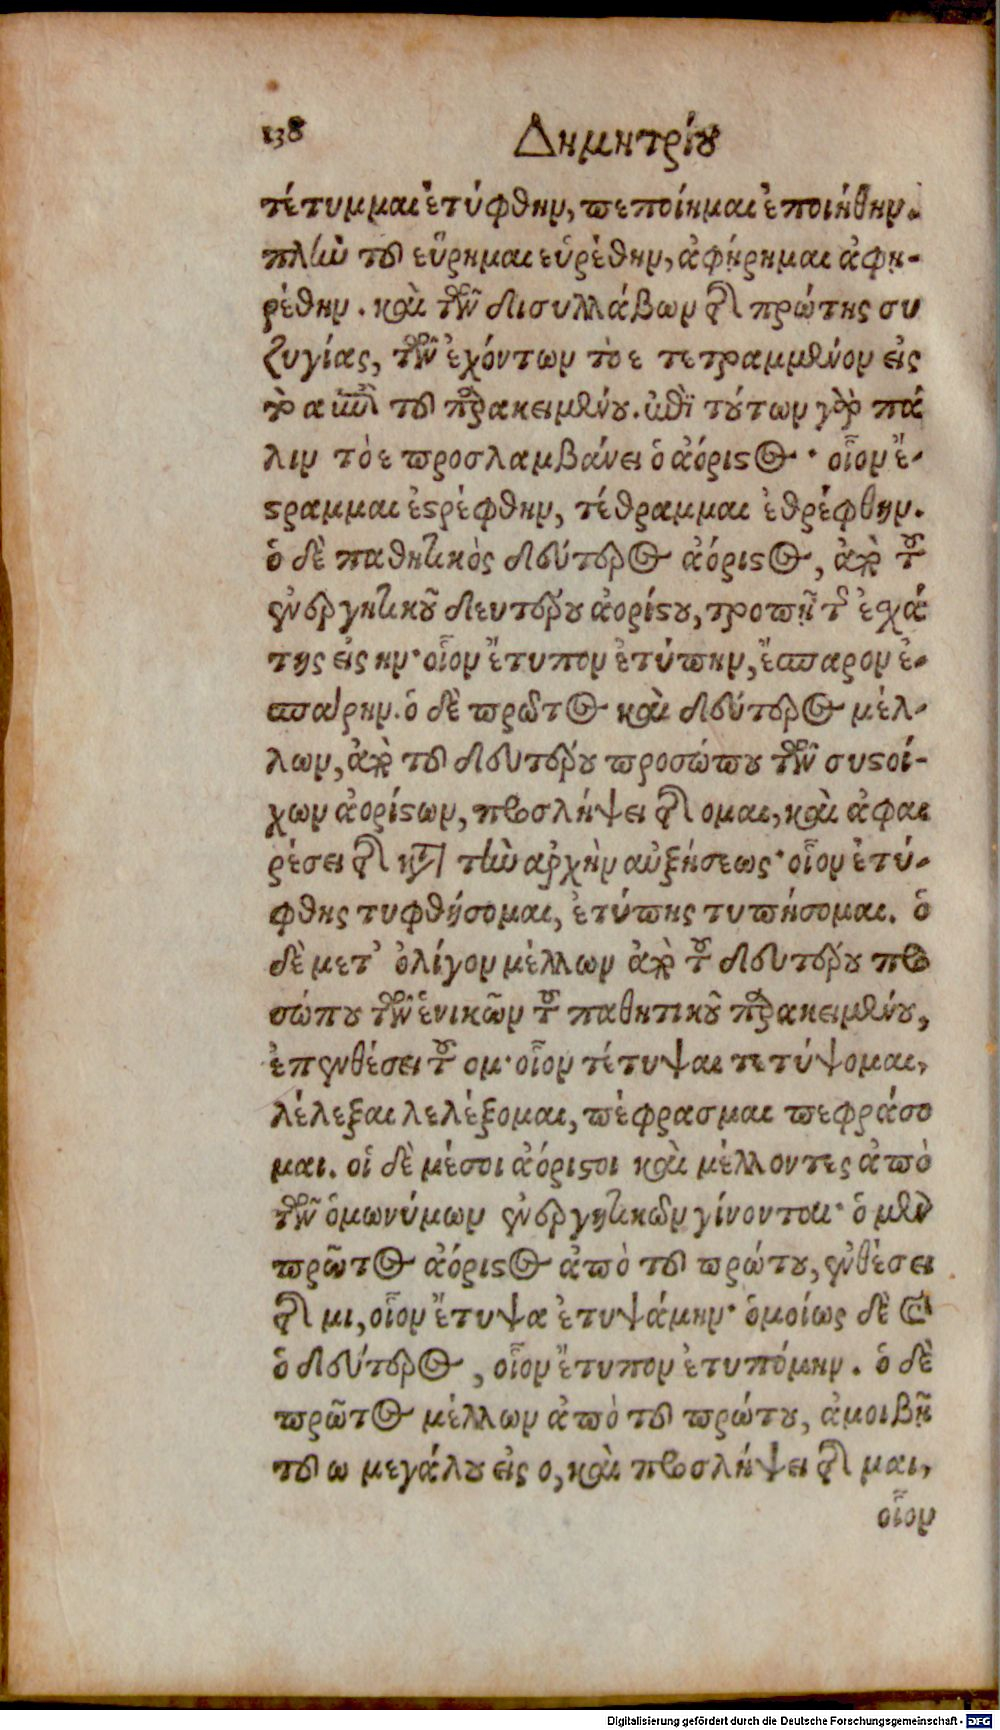 138 Δημητρίου
τέτυμμαι ἐτύφθην, πεποίημαι ἐποιήθην.
πλὴν τοῦ εὕρημαι εὑρέθην, ἀφῄρημαι ἀφῃ-
ρέθην. καὶ τῶν δισυλλάβων τῆς πρώτης συ
ζυγίας, τῶν ἐχόντων τὸ ε τετραμμένον εἰς
τὸ α ἐπὶ τοῦ παρακειμένου. ἐπὶ τούτων γὰρ πά
λιν τὸ ε προσλαμβάνει ὁ ἀόριστος· οἷον ἔ-
στραμμαι ἐστρέφθην, τέθραμμαι ἐθρέφθην.
ὁ δὲ παθητικὸς δεύτερος ἀόριστος, ἀπὸ τοῦ
ἐνεργητικοῦ δευτέρου ἀορίστου, τροπῇ τῆς ἐσχά
της εἰς ην· οἷον ἔτυπον ἐτύπην, ἔσπαρον ἐ-
σπάρην. ὁ δὲ πρῶτος καὶ δεύτερος μέλ-
λων, ἀπὸ τοῦ δευτέρου προσώπου τῶν συστοί-
χων ἀορίστων, προσλήψει τῆς ομαι, καὶ ἀφαι
ρέσει τῆς κατὰ τὴν ἀρχὴν αὐξήσεως· οἷον ἐτύ-
φθης τυφθήσομαι, ἐτύπης τυπήσομαι. ὁ
δὲ μετ' ὀλίγον μέλλων ἀπὸ τοῦ δευτέρου προ
σώπου τῶν ἑνικῶν τοῦ παθητικοῦ παρακειμένου,
ἐπενθέσει τοῦ ομ· οἷον τέτυψαι τετύψομαι,
λέλεξαι λελέξομαι, πέφρασμαι πεφράσο
μαι. οἱ δὲ μέσοι ἀόριστοι καὶ μέλλοντες ἀπὸ
τῶν ὁμωνύμων ἐνεργητικῶν γίνονται· ὁ μὲν
πρῶτος ἀόριστος ἀπὸ τοῦ πρώτου, ἐνθέσει
τῆς μι, οἷον ἔτυψα ἐτυψάμην· ὁμοίως δὲ καὶ
ὁ δεύτερος, οἷον ἔτυπον ἐτυπόμην. ὁ δὲ
πρῶτος μέλλων ἀπὸ τοῦ πρώτου, ἀμοιβῇ
τοῦ ω μεγάλου εἰς ο, καὶ προσλήψει τῆς μαι,
οἷον
Digitalisierung gefördert durch die Deutsche Forschungsgemeinschaft - DFG